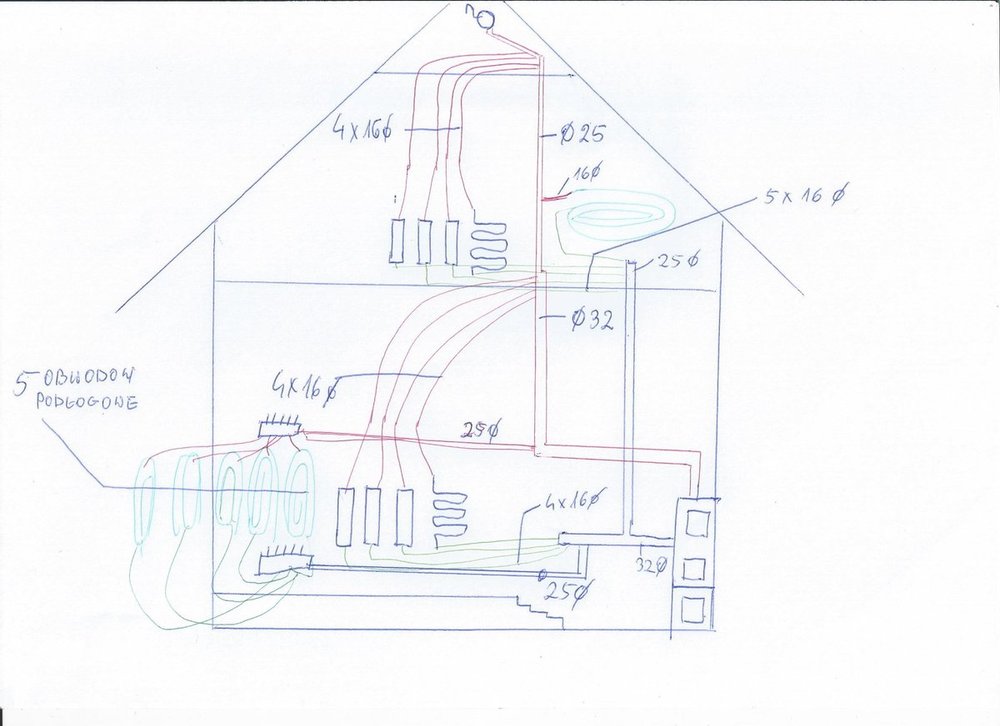 4x16ø
ø25
16ø
5x16ø
25ø
ø32
5 OBWODOW
PODŁOGOWE
4x16ø
25ø
4x16ø
32ø
25ø